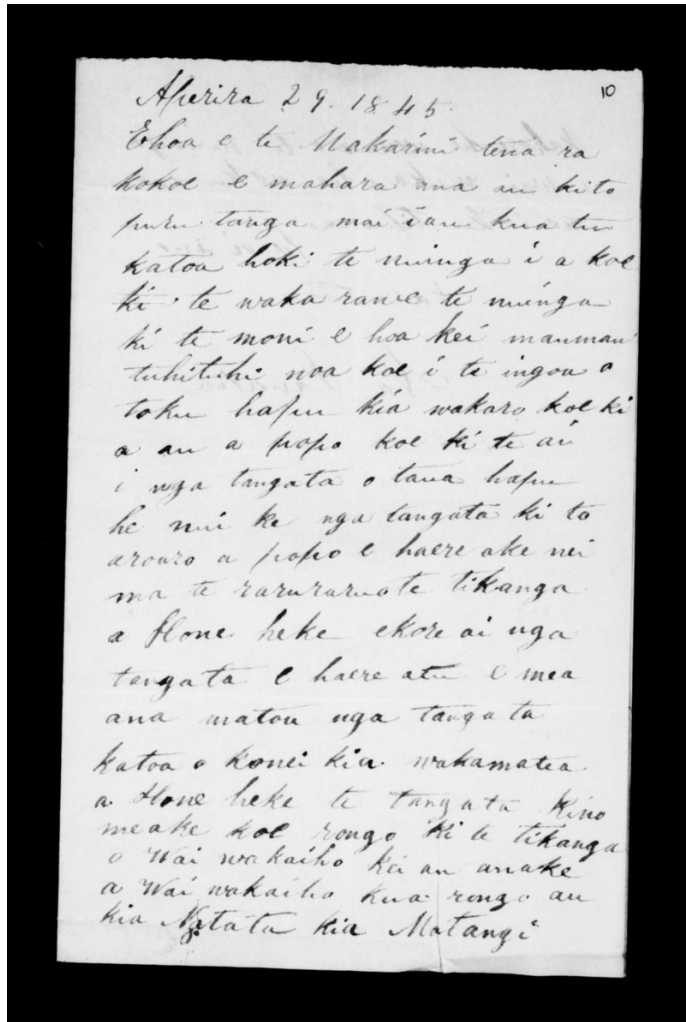 10
Aperira 29. 1845.
Ehoa e te Makarini tena ra
kokoe e mahara ana au kito
puru tanga mai i au kua tu
katoa hoki te nuinga i a koe
ki te waka rawe te nuinga
ki te moni e hoa kei maumau
tuhituhi noa koe i te ingoa o
toku hapu kia wakaro koe ki
a au a popo koe ki te ai
i nga tangata o taua hapu
he nui ke nga tangata ki to
aroaro a popo e haere ake nei
ma te raruraruote tikanga
a Hone heke ekore ai nga
tangata e haere atu e mea
ana matou nga tangata
katoa o konei kia wakamatea
a Hone heke te tangata kino
meake koe rongo ki te tikanga
o Wai wakaiho kei au anake
a Wai wakaiho kua rongo au
kia Ngatata kia Matangi